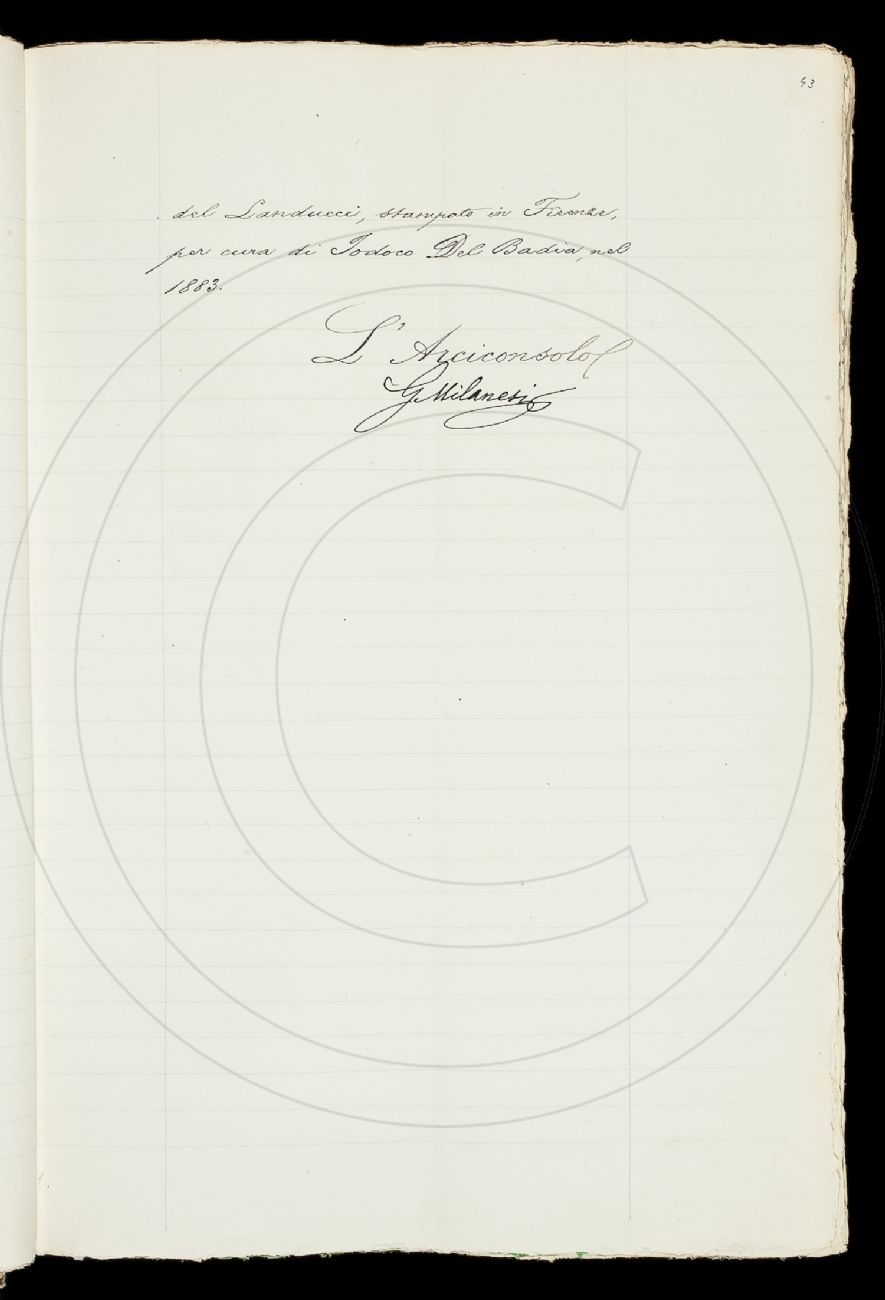 43
del Landucci, stampato in Firenze,
per cura di Jodoco Del Badia, nel
1883.
L' Arciconsolo
G. Milanesi